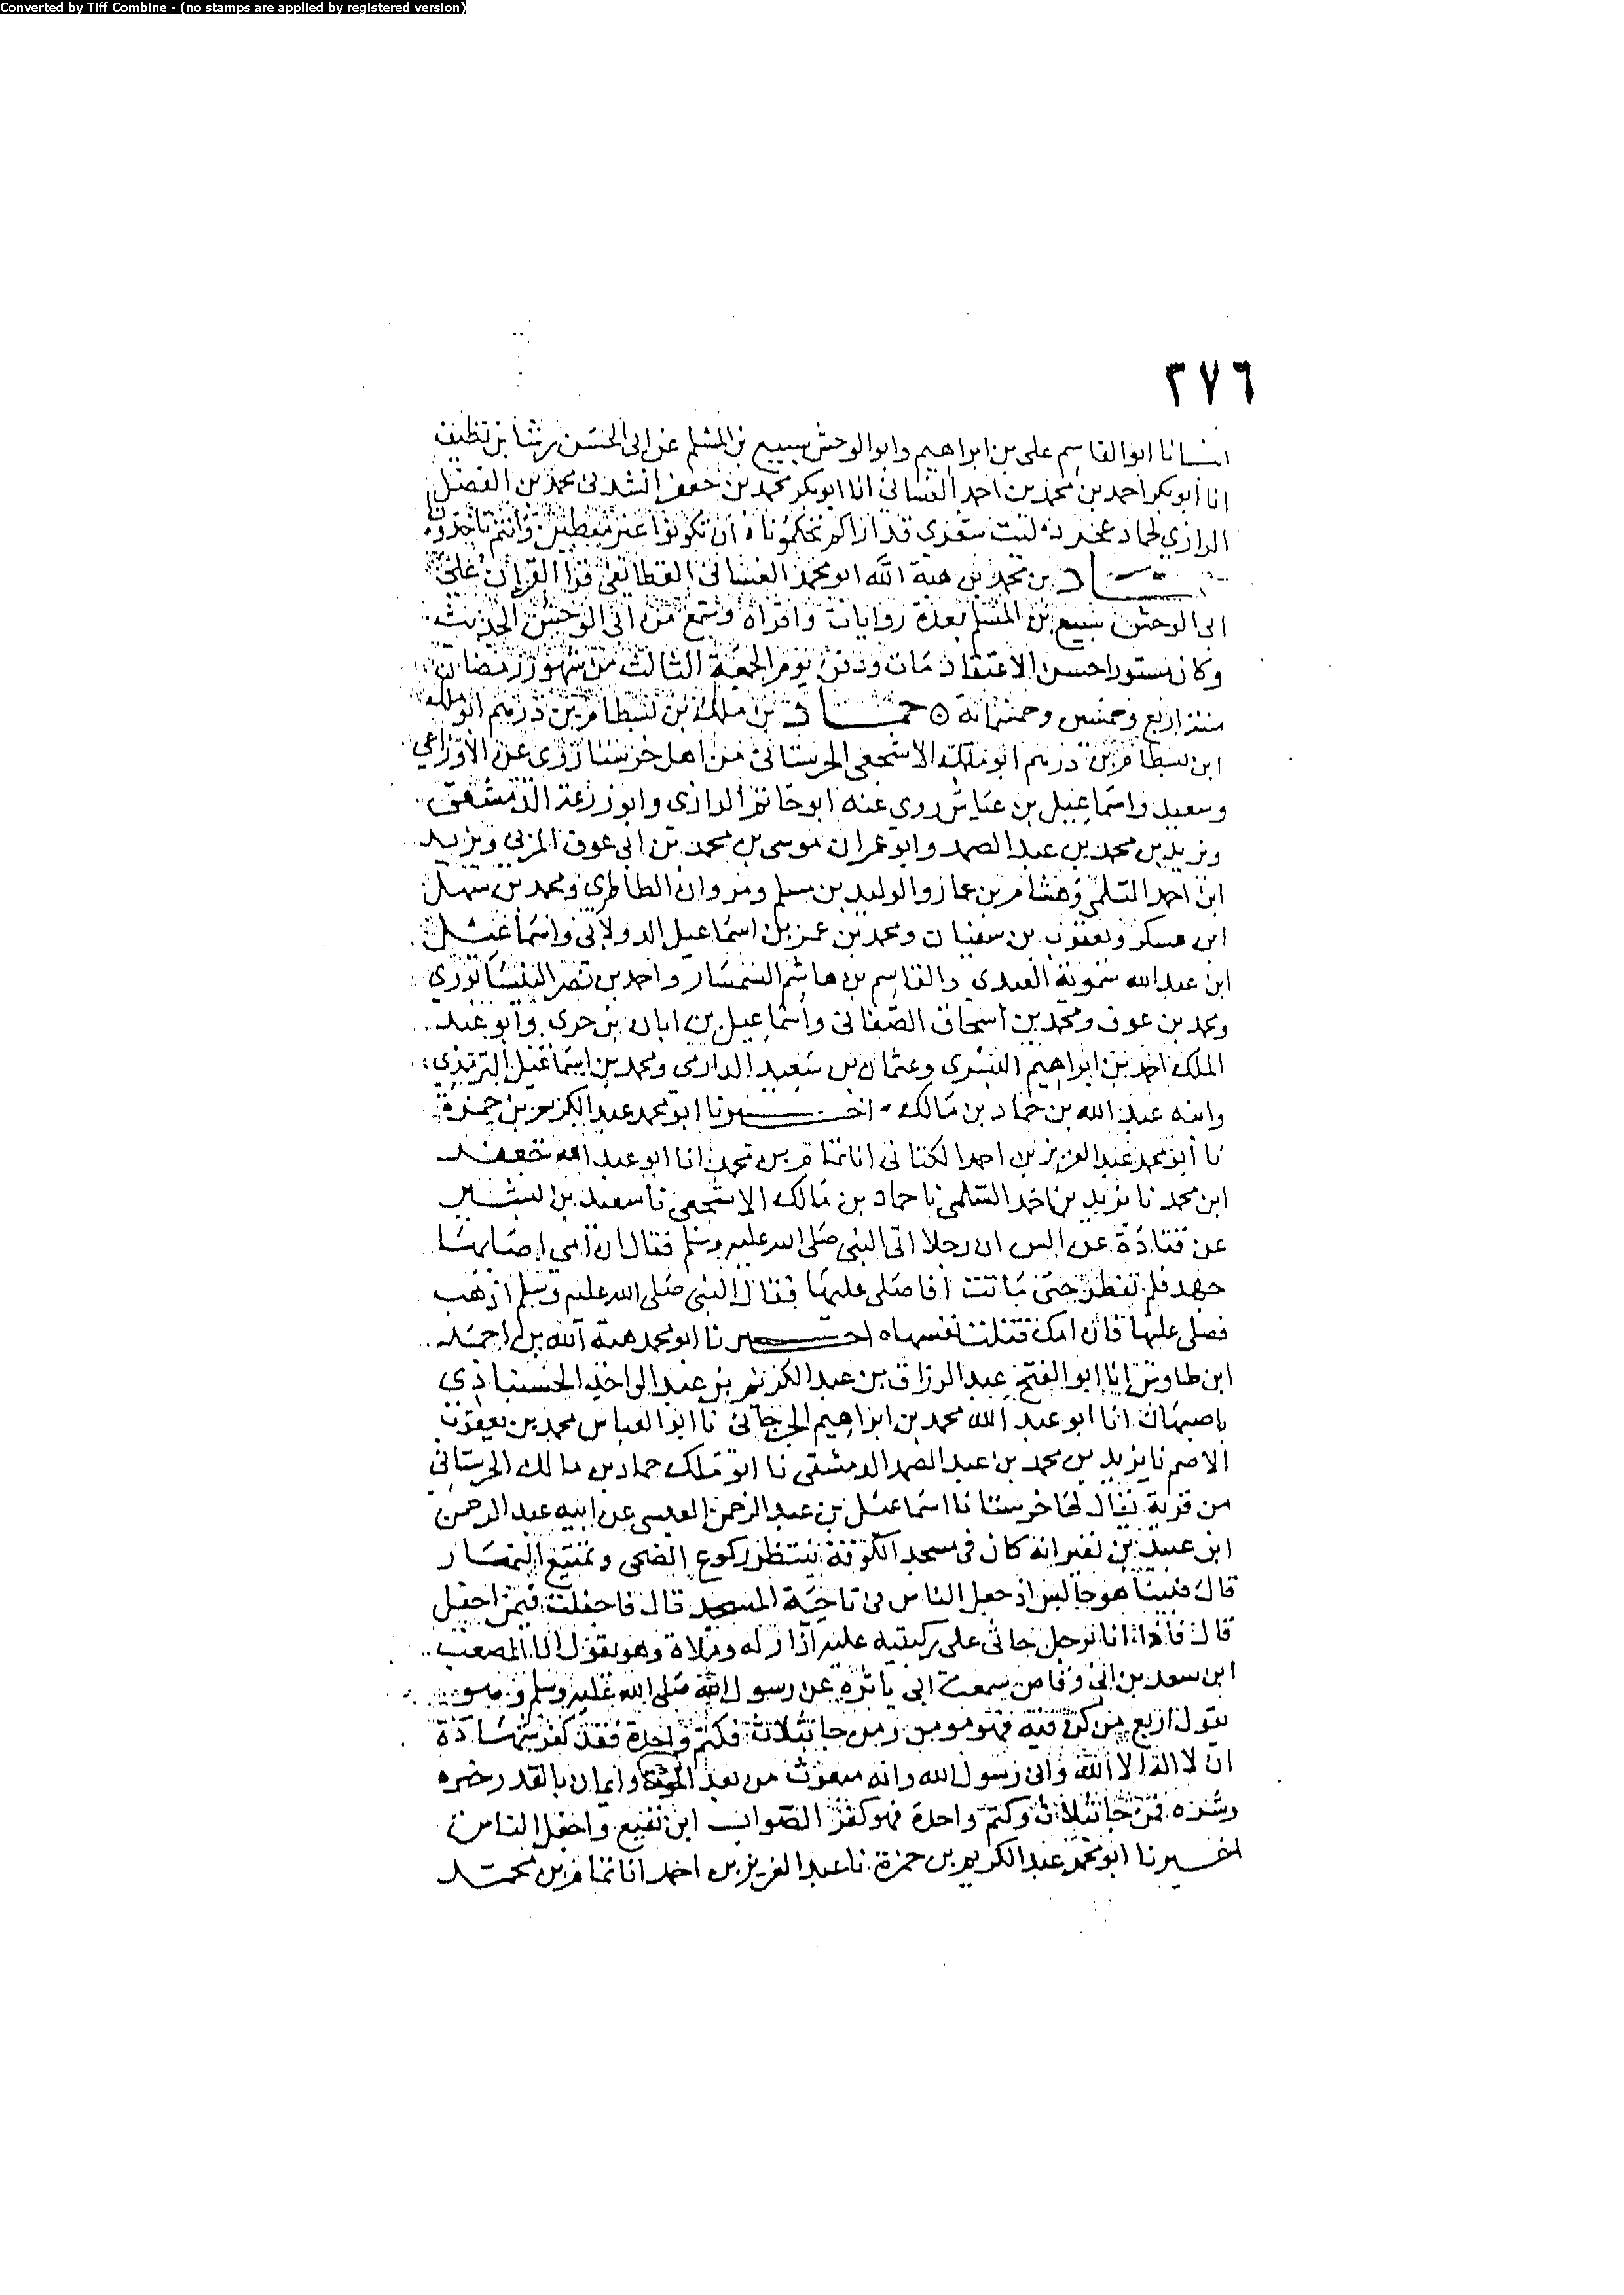 Converted by Tiff Combine - (no stamps are applied by registered version)
٣٧٦
انبانا ابو القاسم على بن ابراهيم وابو الوحش سبيع بن المسلم عن ابى الحسن رشا بن نظيف
انا أبو بكر احمد بن محمد بن احمد الغسانى انا ابو بكر محمد بن جعفر انشدنى محمد بن الفضل
الرازي لحماد عجرد ليت شعري
بن محمد بن هبة الله ابو محمد الغسانى القطايفى قرا القرآن على
ابى الوحش سبيع بن المسلم بعدة روايات واقراه وسمع من ابى الوحش الحديث
وكان مستورا حسن الاعتقاد مات ودفن يوم الجمعة الثالث من شهور رمضان
سنة اربع وخمسين وخمسمائة ه حماد بن ملك بن بسطام بن درهم ابو ملك
ابن بسطام بن درهم ابو ملك الاشجعى الحرستانى من اهل حرستا روى عن الاوزاعي
وسعيد واسماعيل بن عياش روى عنه ابو حاتم الرازى وابو زرعة الدمشقى
ويزيد بن محمد بن عبد الصمد وابو عمران موسى بن محمد بن ابى عوف المزنى ويزيد
ابن احمد السلمى وهشام بن عمار والوليد بن مسلم ومروان الطاطرى ومحمد بن سهل
ابن عسكر ويعقوب بن سفيان ومحمد بن عمر بن اسماعيل الدولابى واسماعيل
ابن عبد الله سمويه العبدي والقاسم بن هاشم السمسار واحمد بن نصر النيسابورى
ومحمد بن عوف ومحمد بن اسحاق الصغانى واسماعيل بن ابان بن حوى وابو عبد
الملك احمد بن ابراهيم البسرى وعثمان بن سعيد الدارمى ومحمد بن اسماعيل الترمذى
وابنه عبد الله بن حماد بن مالك اخبرنا ابو محمد عبد الكريم بن حمزة
نا أبو محمد عبد العزيز بن احمد الكتانى انا تمام بن محمد انا ابو عبد الله جعفر
ابن محمد نا يزيد بن احمد السلمى نا حماد بن مالك الاشجعى نا سعيد بن بشير
عن قتادة عن انس ان رجلا اتى النبى صلى الله عليه وسلم فقال ان أمي اصابها
جهد فلم تفطر حتى ماتت افاصلى عليها فقال النبى صلى الله عليه وسلم اذهب
فصلى عليها فان امك قتلت نفسها ه اخبرنا ابو محمد هبة الله بن احمد
ابن طاوس انا ابو الفتح عبد الرزاق بن عبد الكريم بن عبد الواحد الحسناباذى
باصبهان انا ابو عبد الله محمد بن ابراهيم الجرجانى نا ابو العباس محمد بن يعقوب
الاصم نا يزيد بن محمد بن عبد الصمد الدمشقى نا ابو ملك حماد بن مالك الحرستانى
من قرية يقال لها حرستا نا اسماعيل بن عبد الرحمن العبسى عن ابيه عبد الرحمن
ابن عبيد بن نفير انه كان فى مسجد الكوفة ينتظر ركوع الضحى وتمتيع النهار
قال فبينا هو جالس اذ جفل الناس فى ناحية المسجد قال فاجفلت فيمن اجفل
قال فاذا انا برجل جاثى على ركبتيه عليه ازار له وملاة وهو يقول انا المصعب
ابن سعد بن ابى وقاص سمعت ابى ياثره عن رسول الله صلى الله عليه وسلم وهو
يقول اربع من كن فيه فهو مومن ومن جا بثلاث فكتم واحدة فقد كفر شهادة
ان لا اله الا الله وانى رسول الله وانه مبعوث من بعد الموت وايمان بالقدر خيره
وشره فمن جا بثلاث وكتم واحدة فهو كفر الصواب ابن نفيع واجفل الناس
اخبرنا ابو محمد عبد الكريم بن حمزة نا عبد العزيز بن احمد انا تمام بن محمد